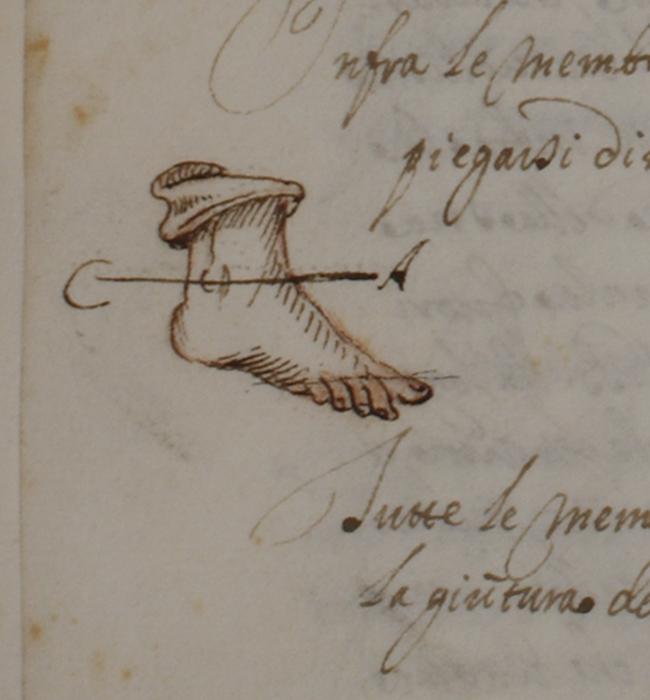 nfra le memb
piegarsi di
C A
Tutte le mem
la giūtura de